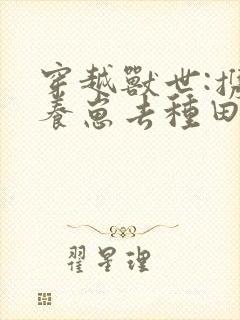 穿越獸世:
養崽去種田
翟星理